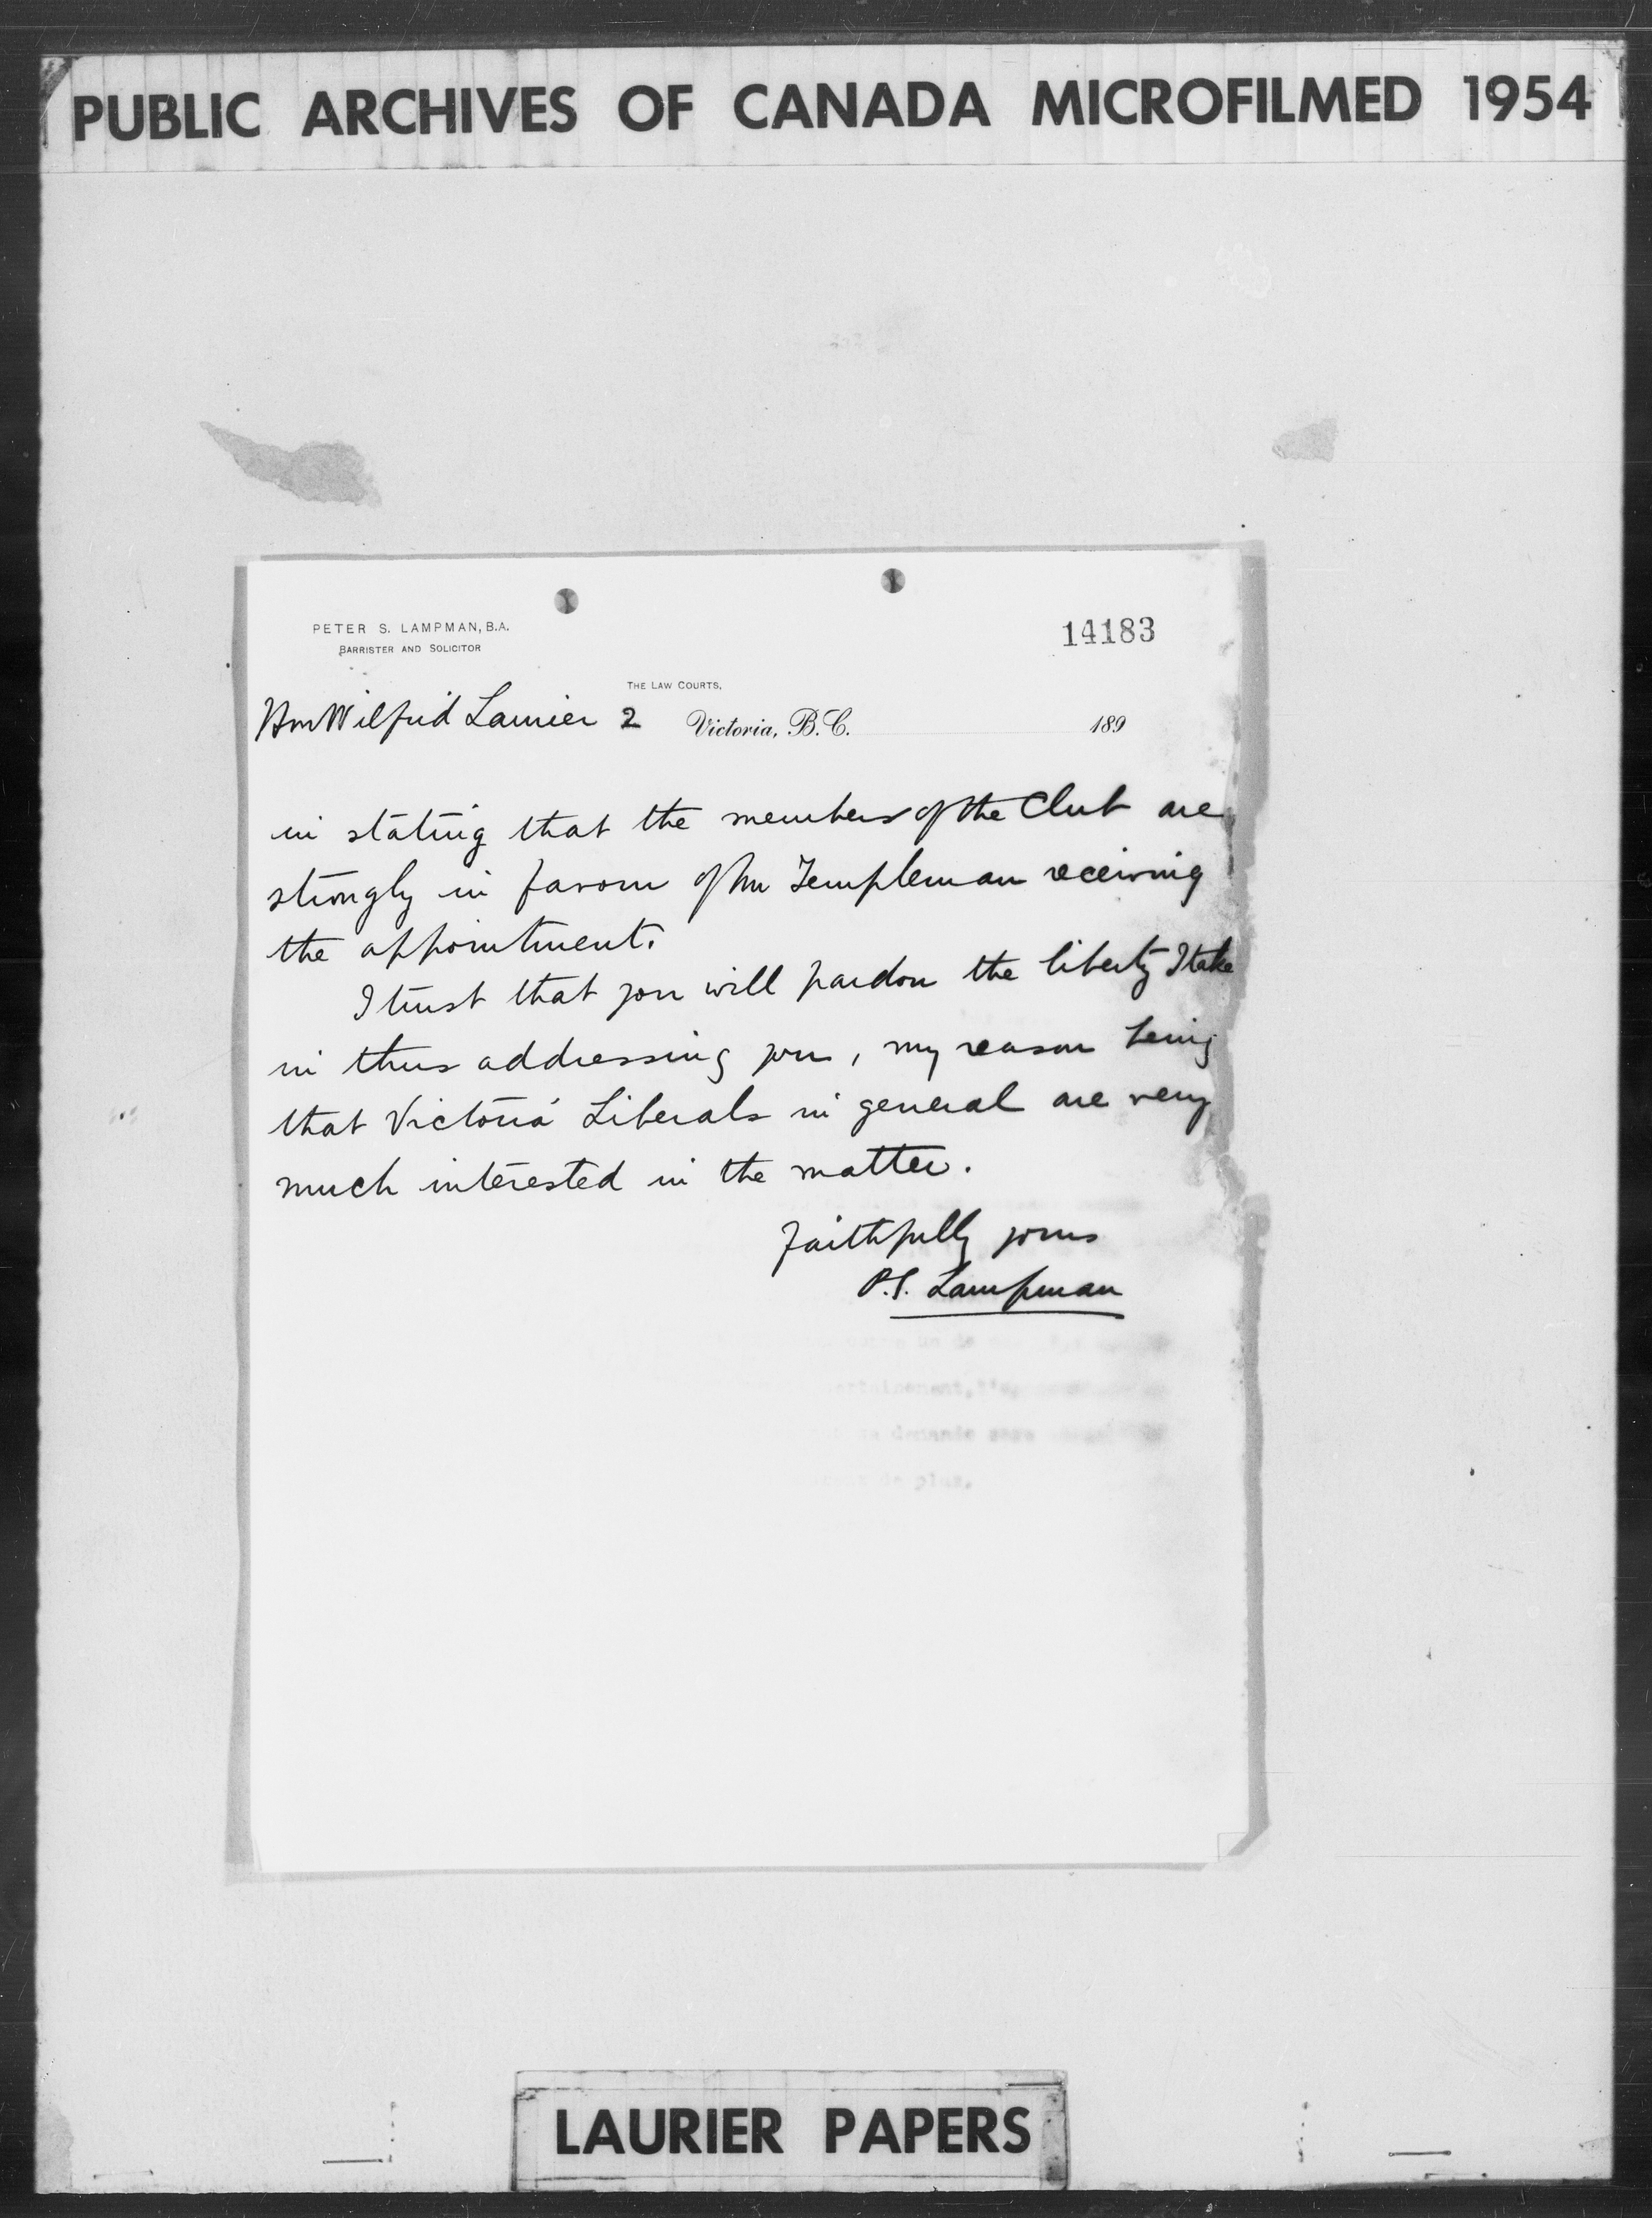 PUBLIC ARCHIVES OF CANADA MICROFILMED 1954
PETER S. LAMPMAN, B.A.
BARRISTER AND SOLICITOR
14183
THE LAW COURTS,
Hon Wilfrid Laurier 2 Victoria, B.C. 189
in stating that the members of the Club are
strongly in favour of Mr Templeman receiving
the appointment.
I trust that you will pardon the liberty I take
in thus addressing you, my reason being
that Victoria Liberals in general are very
much interested in the matter.
Faithfully yours
P.S. Lampman
LAURIER PAPERS